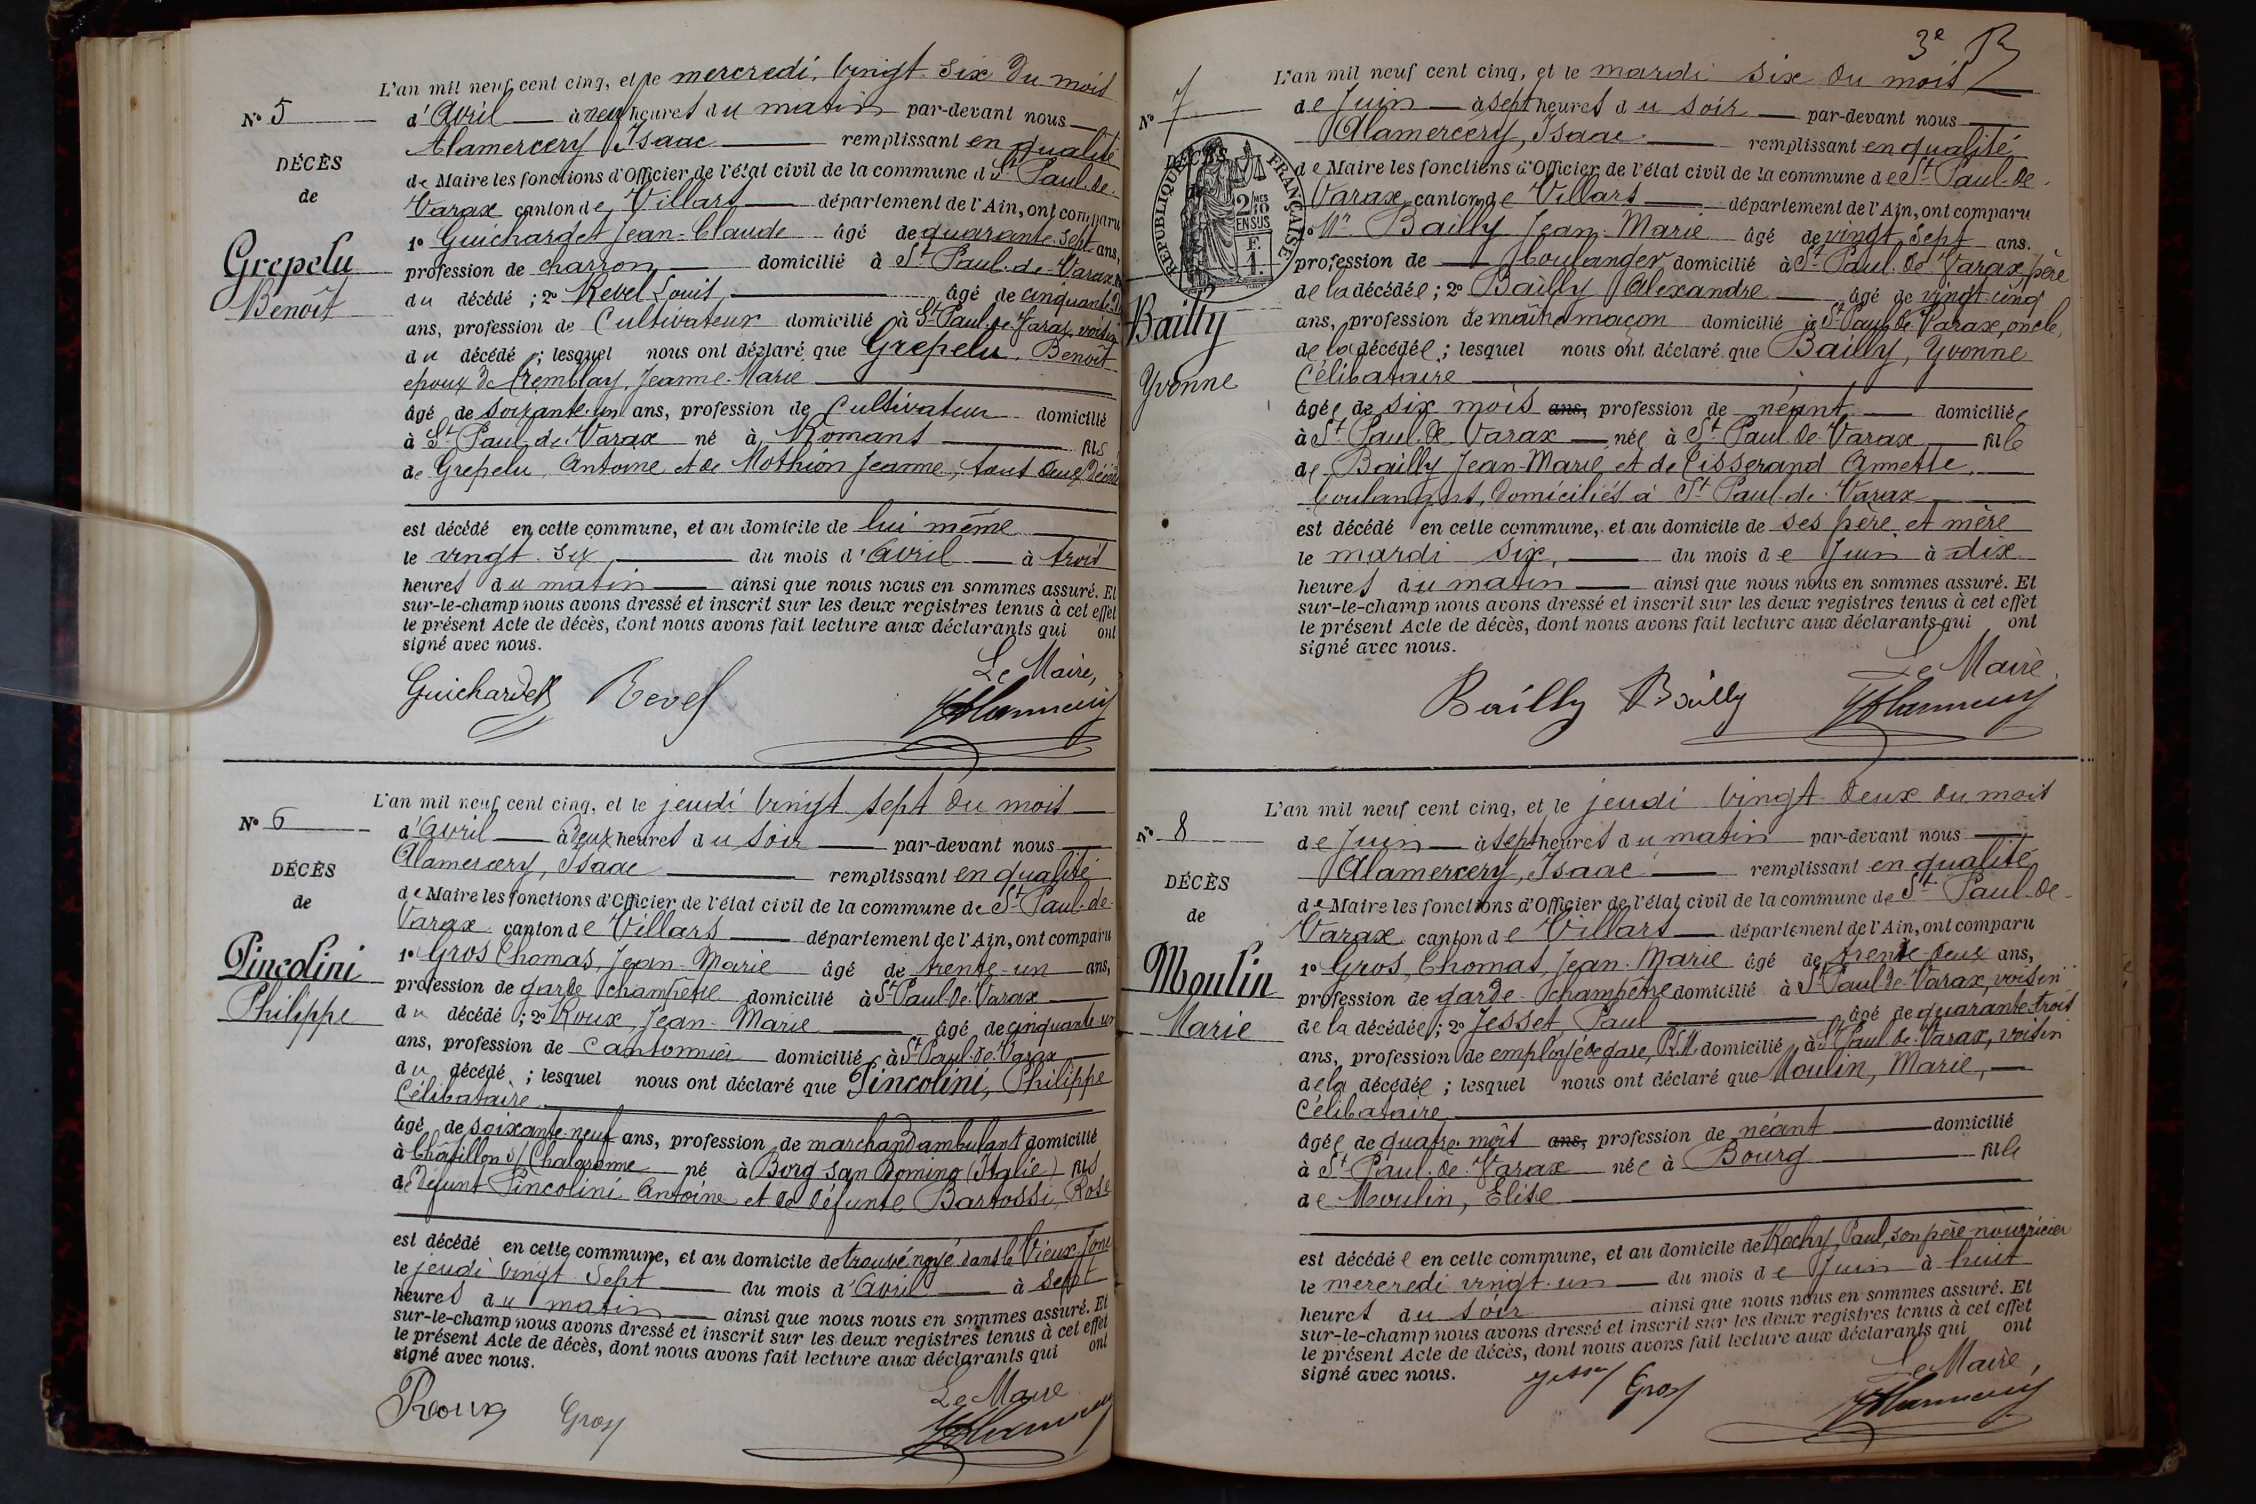 L'an mil neuf cent cinq, et le mercredi, vingt six du mois
N° 5
d'Avril à neuf heures du matin par-devant nous
Alamercery Isaac remplissant en qualité
DÉCÈS
de Maire les fonctions d'Officier de l'état civil de la commune de St Paul-de-
de
Varax canton de Villars département de l'Ain, ont comparu
Grepelu
Benoît
1° Guichardet Jean-Claude âgé de quarante sept ans,
profession de charron domicilié à St Paul-de-Varax
du décédé ; 2° Revel Louis, âgé de cinquante
ans, profession de Cultivateur domicilié à St Paul de Varax voisin
du décédé ; lesquel nous ont déclaré que Grepelu, Benoît
époux de Tremblay, Jeanne-Marie
âgé de soixante-un ans, profession de Cultivateur domicilié
à St Paul-de-Varax né à Romans fils
de Grepelu, Antoine et de Mothion Jeanne, tous deux décédés
est décédé en cette commune, et au domicile de lui même
le vingt-six du mois d'Avril à trois
heures du matin ainsi que nous nous en sommes assuré. Et
sur-le-champ nous avons dressé et inscrit sur les deux registres tenus à cet effet
le présent Acte de décès, dont nous avons fait lecture aux déclarants qui ont
signé avec nous.
Le Maire,
Guichardet Revel
L'an mil neuf cent cinq, et le jeudi vingt sept du mois
N° 6
d'Avril à deux heures du soir par-devant nous
Alamercery, Isaac remplissant en qualité
DÉCÈS
de Maire les fonctions d'Officier de l'état civil de la commune de St Paul-de-
de
Varax canton de Villars département de l'Ain, ont comparu
Pincolini
Philippe
1° Gros Thomas, Jean-Marie âgé de trente-un ans,
profession de garde champêtre domicilié à St Paul-de-Varax
du décédé ; 2° Roux, Jean-Marie âgé de cinquante-un
ans, profession de Cantonnier domicilié à St Paul-de-Varax
du décédé ; lesquel nous ont déclaré que Pincolini, Philippe
Célibataire
âgé de soixante-neuf ans, profession de marchand ambulant domicilié
à Châtillon s/ Chalaronne né à Borg San Domino (Italie) fils
de défunt Pincolini Antoine et de défunte Bartossi, Rose
est décédé en cette commune, et au domicile de trouvé noyé dans le Vieux Jonc
le jeudi vingt sept du mois d'Avril à sept
heures du matin ainsi que nous nous en sommes assuré. Et
sur-le-champ nous avons dressé et inscrit sur les deux registres tenus à cet effet
le présent Acte de décès, dont nous avons fait lecture aux déclarants qui ont
signé avec nous.
Le Maire
Roux Gros
3e
L'an mil neuf cent cinq, et le mardi six du mois
N° 7
de Juin à sept heures du soir par-devant nous
Alamercery, Isaac remplissant en qualité
DÉCÈS
RÉPUBLIQUE FRANÇAISE
2/10 MES EN SUS
F. 1.
de Maire les fonctions d'Officier de l'état civil de la commune de St Paul-de-
Varax canton de Villars département de l'Ain, ont comparu
1° Mr Bailly Jean-Marie âgé de vingt sept ans.
profession de boulanger domicilié à St Paul-de-Varax père
Bailly
Yvonne
de la décédée ; 2° Bailly Alexandre âgé de vingt-cinq
ans, profession de maître maçon domicilié à St Paul de Varax, oncle,
de la décédée ; lesquel nous ont déclaré que Bailly, Yvonne
Célibataire
âgée de six mois ans, profession de néant domiciliée
à St Paul de Varax née à St Paul de Varax fille
de Bailly Jean-Marie et de Tisserand Annette,
boulangers, domiciliés à St Paul-de-Varax
est décédé en cette commune, et au domicile de ses père et mère
le mardi six, du mois de Juin à dix
heures du matin ainsi que nous nous en sommes assuré. Et
sur-le-champ nous avons dressé et inscrit sur les deux registres tenus à cet effet
le présent Acte de décès, dont nous avons fait lecture aux déclarants qui ont
signé avec nous.
Le Maire
Bailly Bailly
L'an mil neuf cent cinq, et le jeudi vingt-deux du mois
N° 8
de Juin à sept heures du matin par-devant nous
Alamercery, Isaac remplissant en qualité
DÉCÈS
de Maire les fonctions d'Officier de l'état civil de la commune de St Paul-de-
de
Varax canton de Villars département de l'Ain, ont comparu
Moulin
Marie
1° Gros, Thomas, Jean-Marie âgé de trente-deux ans,
profession de garde-champêtre domicilié à St Paul de Varax, voisin
de la décédée ; 2° Jesset, Paul âgé de quarante-trois
ans, profession de employé de gare, P.L.M. domicilié à St Paul de Varax, voisin
de la décédée ; lesquel nous ont déclaré que Moulin, Marie,
Célibataire
âgée de quatre mois ans, profession de néant domicilié
à St Paul-de-Varax née à Bourg fille
de Moulin, Elise
est décédée en cette commune, et au domicile de Rochy, Paul, son père nourricier
le mercredi vingt-un du mois de Juin à huit
heures du soir ainsi que nous nous en sommes assuré. Et
sur-le-champ nous avons dressé et inscrit sur les deux registres tenus à cet effet
le présent Acte de décès, dont nous avons fait lecture aux déclarants qui ont
signé avec nous.
Le Maire,
Jesset Gros